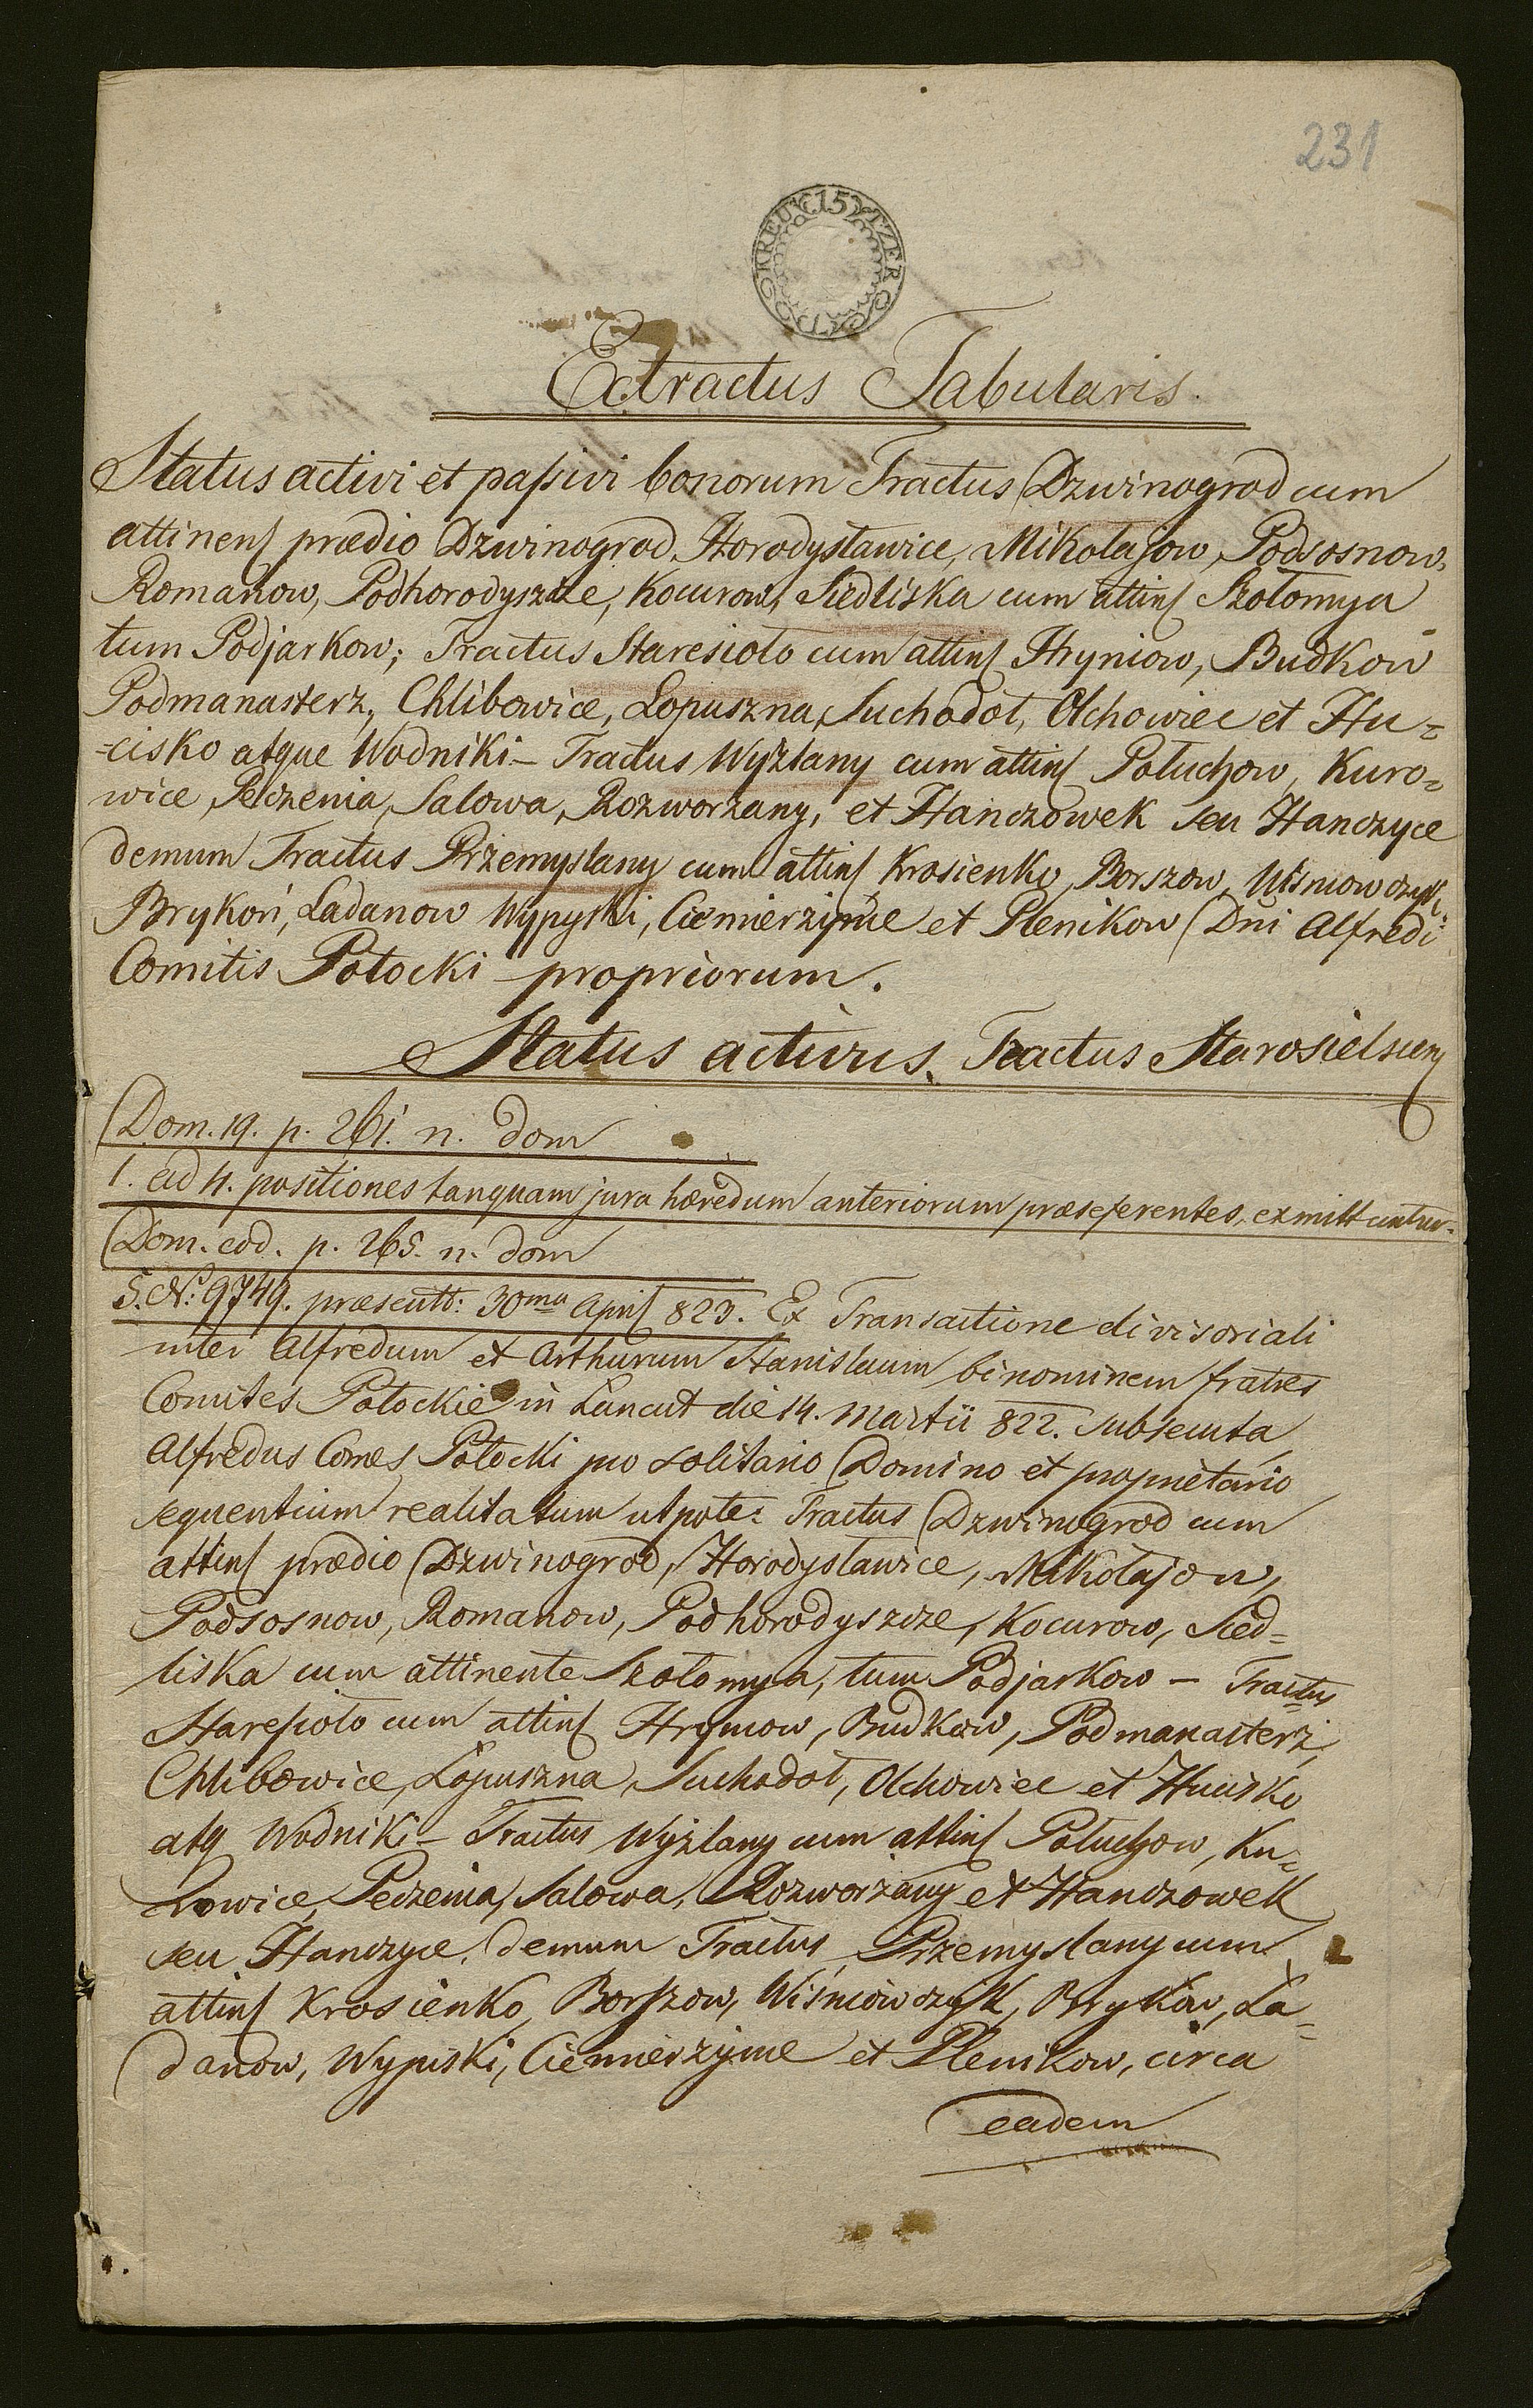 231
15 KREUTZER
Extractus Tabularis.
Status activi et passivi bonorum Tractus Dzwinogrod cum
attinens prædio Dzwinogrod, Horodysławice, Mikołajow, Podsosnow,
Romanow, Podhorodyszcze, Kocurow, Siedliska cum attins Szołomya
tum Podjarkow; Tractus Staresioło cum attins Hryniow, Budkow
Podmanasterz, Chlibowice, Łopuszna, Suchodoł, Olchowiec et Hu=
=cisko atque Wodniki – Tractus Wyżlany cum attins Połuchow, Kuro=
wice, Peczenia, Salowa, Rozworzany, et Hanczowek seu Hanczyce
demum Tractus Przemyslany cum attins Krosienko, Borszow, Wisniowczyk,
Brykoń, Ladanow Wypyski, Ciemierzynce et Plenikow Dni Alfredi
Comitis Potocki propriorum.
Status activus. Tractus Starosielscen
Dom. 19. p. 261. n. dom
1. ad 4. positiones tanquam jura hæredum anteriorum præseferentes, exmittuntur.
Dom. eod. p. 265. n. dom
5. No: 9749. præsentt: 30ma April 823. Ex Transactione divisoriali
inter Alfredum et Arthurum Stanislaum binominem fratres
Comites Potockie in Łancut die 14. Martii 822. subsecuta
Alfredus Comes Potocki pro solitario Domino et proprietario
sequentium realitatum utpote: Tractus Dzwinogrod cum
attins prædio Dzwinogrod, Horodysławice, Mikołajow,
Podsosnow, Romanow, Podhorodyszcze, Kocurow, Sied=
liska cum attinente Szołomya, tum Podjarkow – Tractus
Staresioło cum attins Hryniow, Budkow, Podmanasterz,
Chlibowice, Łopuszna, Suchodoł, Olchowiec et Hucisko
atq Wodniki – Tractus Wyżlany cum attins Połuchow, Ku=
rowice, Peczenia, Salowa, Rozworzany et Hanczowek
seu Hanczyce, demum Tractus Przemyslany cum
attins Krosienko, Borszow, Wiśniowczyk, Brykow, Ła=
danow, Wypiski, Ciemierzynce et Plenikow, circa
eadem